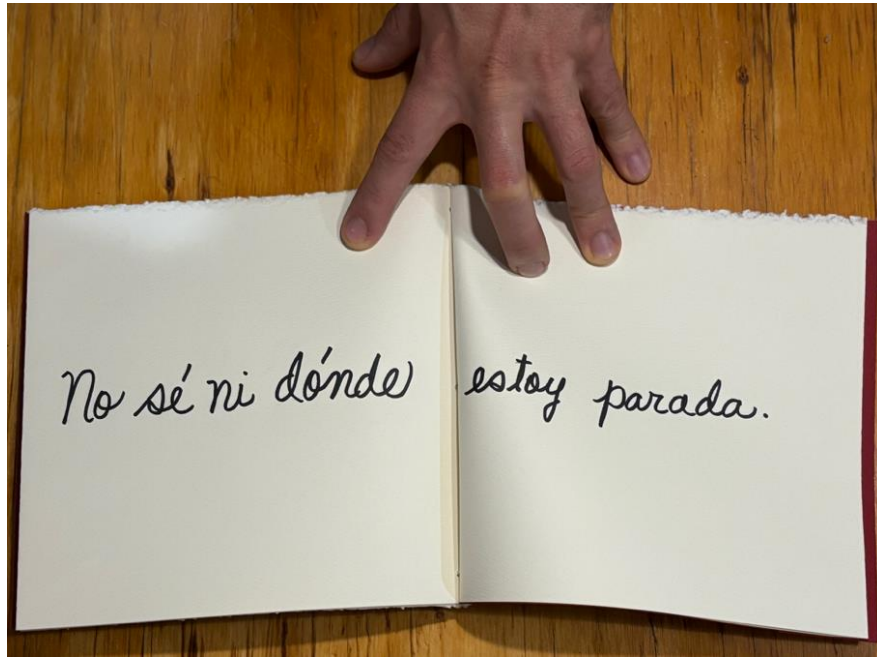 No sé ni dónde estoy parada.